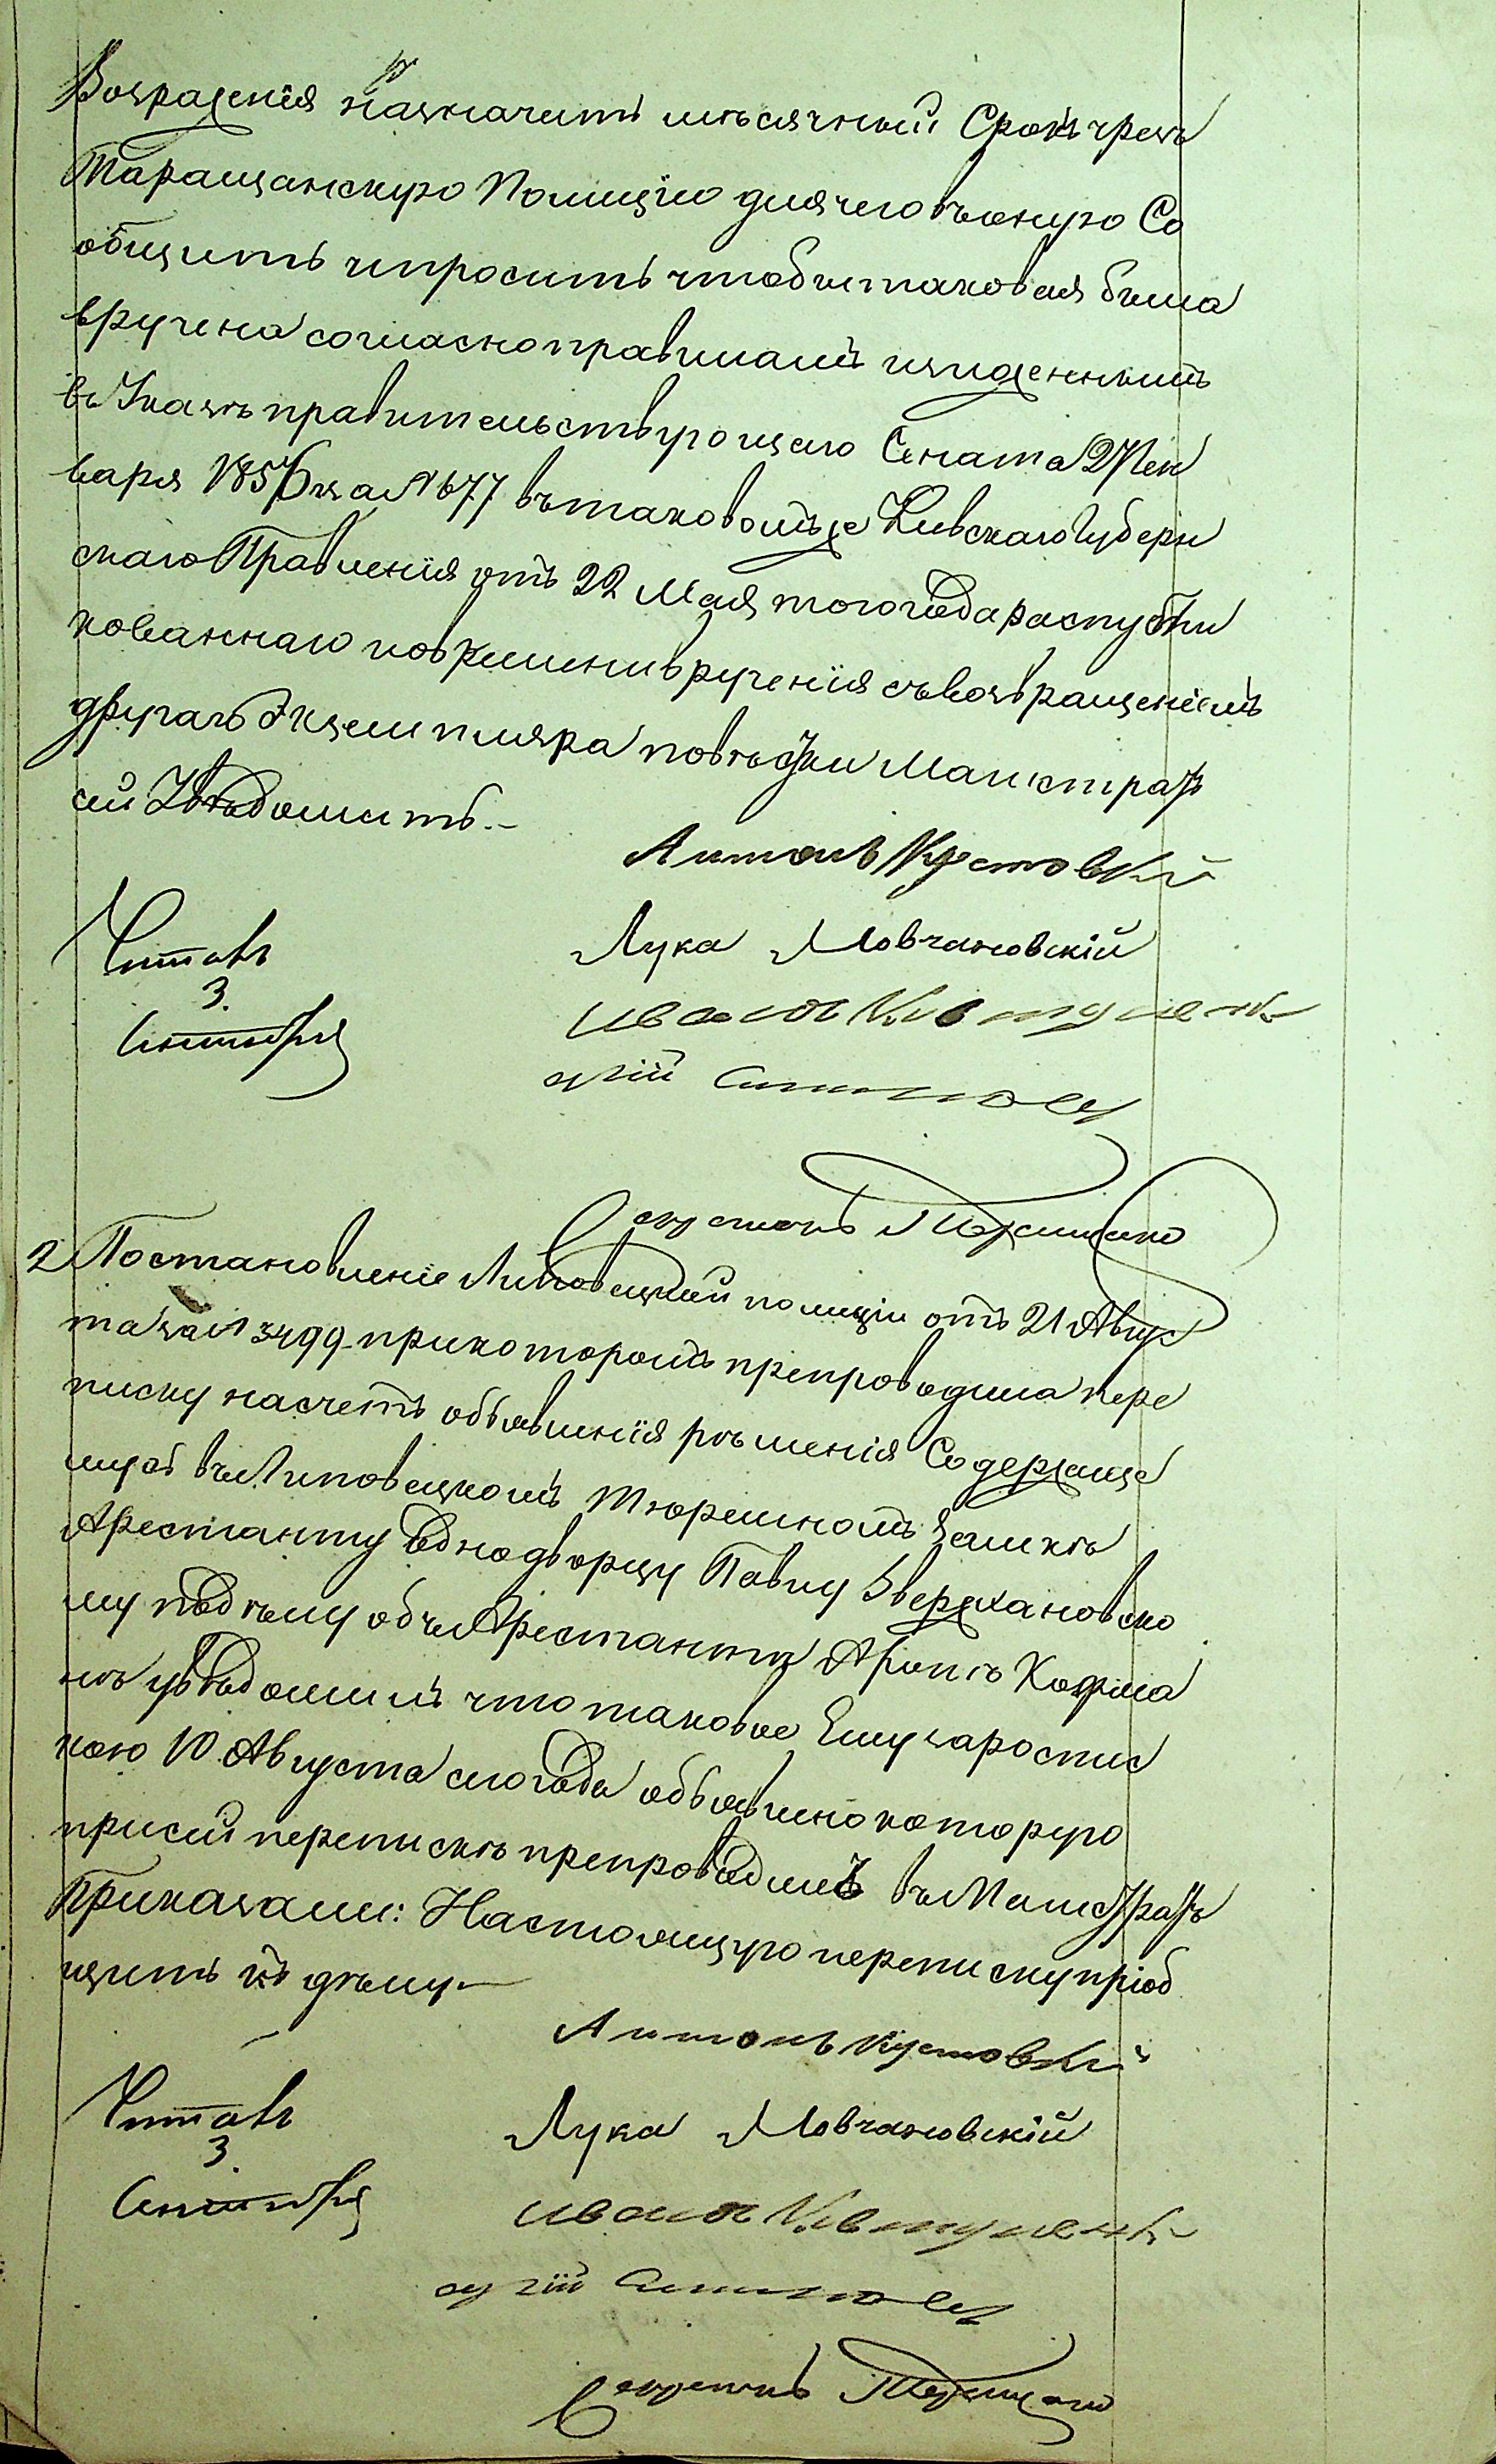 Возраженія назначить мѣсячный Срокъ чрезъ
Таращанскую Полицію для чего въ оную Со
общить и просить чтобы таковая была
вручена согласно правиламъ изложеннымъ
въ Указѣ правительствующаго Сената 27 Ян
варя 1857 за № 677 въ таковомъже Кіевскаго Губерн
скаго Правленія отъ 22 Мая того года распубли
кованнаго и о времени врученія съ возвращеніемъ
другаго Экземпляра повѣстки Магистратъ
сей Увѣдомить.-
Антонъ Кустовкій
Читалъ Лука Мовчановскій
3. Иванъ
Сентября
Секретарь
2 Постановленіе Липовецкой полиціи отъ 21 Авгус
та за № 3499 при которомъ препроводила пере
писку насчетъ объявленія рѣшенія Содержаще
муся въ Липовецкомъ Тюремномъ Замкѣ
Арестанту Однодворцу Павлу Звержхановско
му по дѣлу объ Арестантѣ Аронѣ Кофма
нѣ увѣдомилъ что таковое Ему зароспис
кою 10 Августа сего года объявлено которую
при сей перепискѣ препроводилъ въ Магистратъ
Приказали: Настоящую переписку пріоб
щить къ дѣлу.-
Антонъ Кустовкій
Читалъ Лука Мовчановскій
3. Иванъ
Сентября
Секретарь